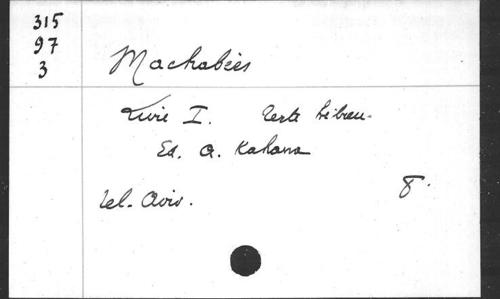 315
97
3
Machabées
Livre I. Texte hébreu.
Ed. A. Kahana
Tel-Aviv. 8°.